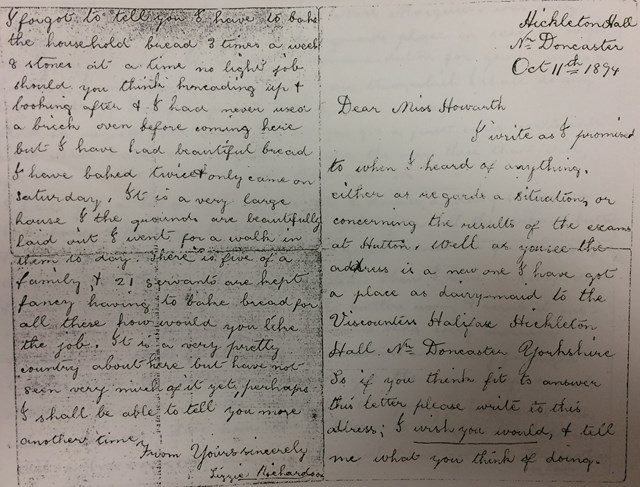 Hickleton Hall
Nr Doncaster
Oct 11th 1894
Dear Miss Howarth
I write as I promised
to when I heard of anything.
either as regards a situation, or
concerning the results of the exams
at Hutton. Well as you see the
address is a new one I have got
a place as dairy-maid to the
Viscountess Halifax Hickleton
Hall, Nr Doncaster Yorkshire
So if you think fit to answer
this letter please write to this
address; I wish you would, & tell
me what you think of doing.
I forgot to tell you I have to bake
the household bread 3 times a week
8 stones at a time no light job
should you think kneading up &
looking after & I had never used
a brick oven before coming here
but I have had beautiful bread
I have baked twice & only came on
Saturday. It is a very large
house & the grounds are beautifully
laid out I went for a walk in
them to day. There is five of a
family & 21 servants are kept
fancy having to bake bread for
all these how would you like
the job. It is a very pretty
country about here but have not
seen very much of it yet, perhaps
I shall be able to tell you more
another time,
From Yours sincerely
Lizzie Richardson